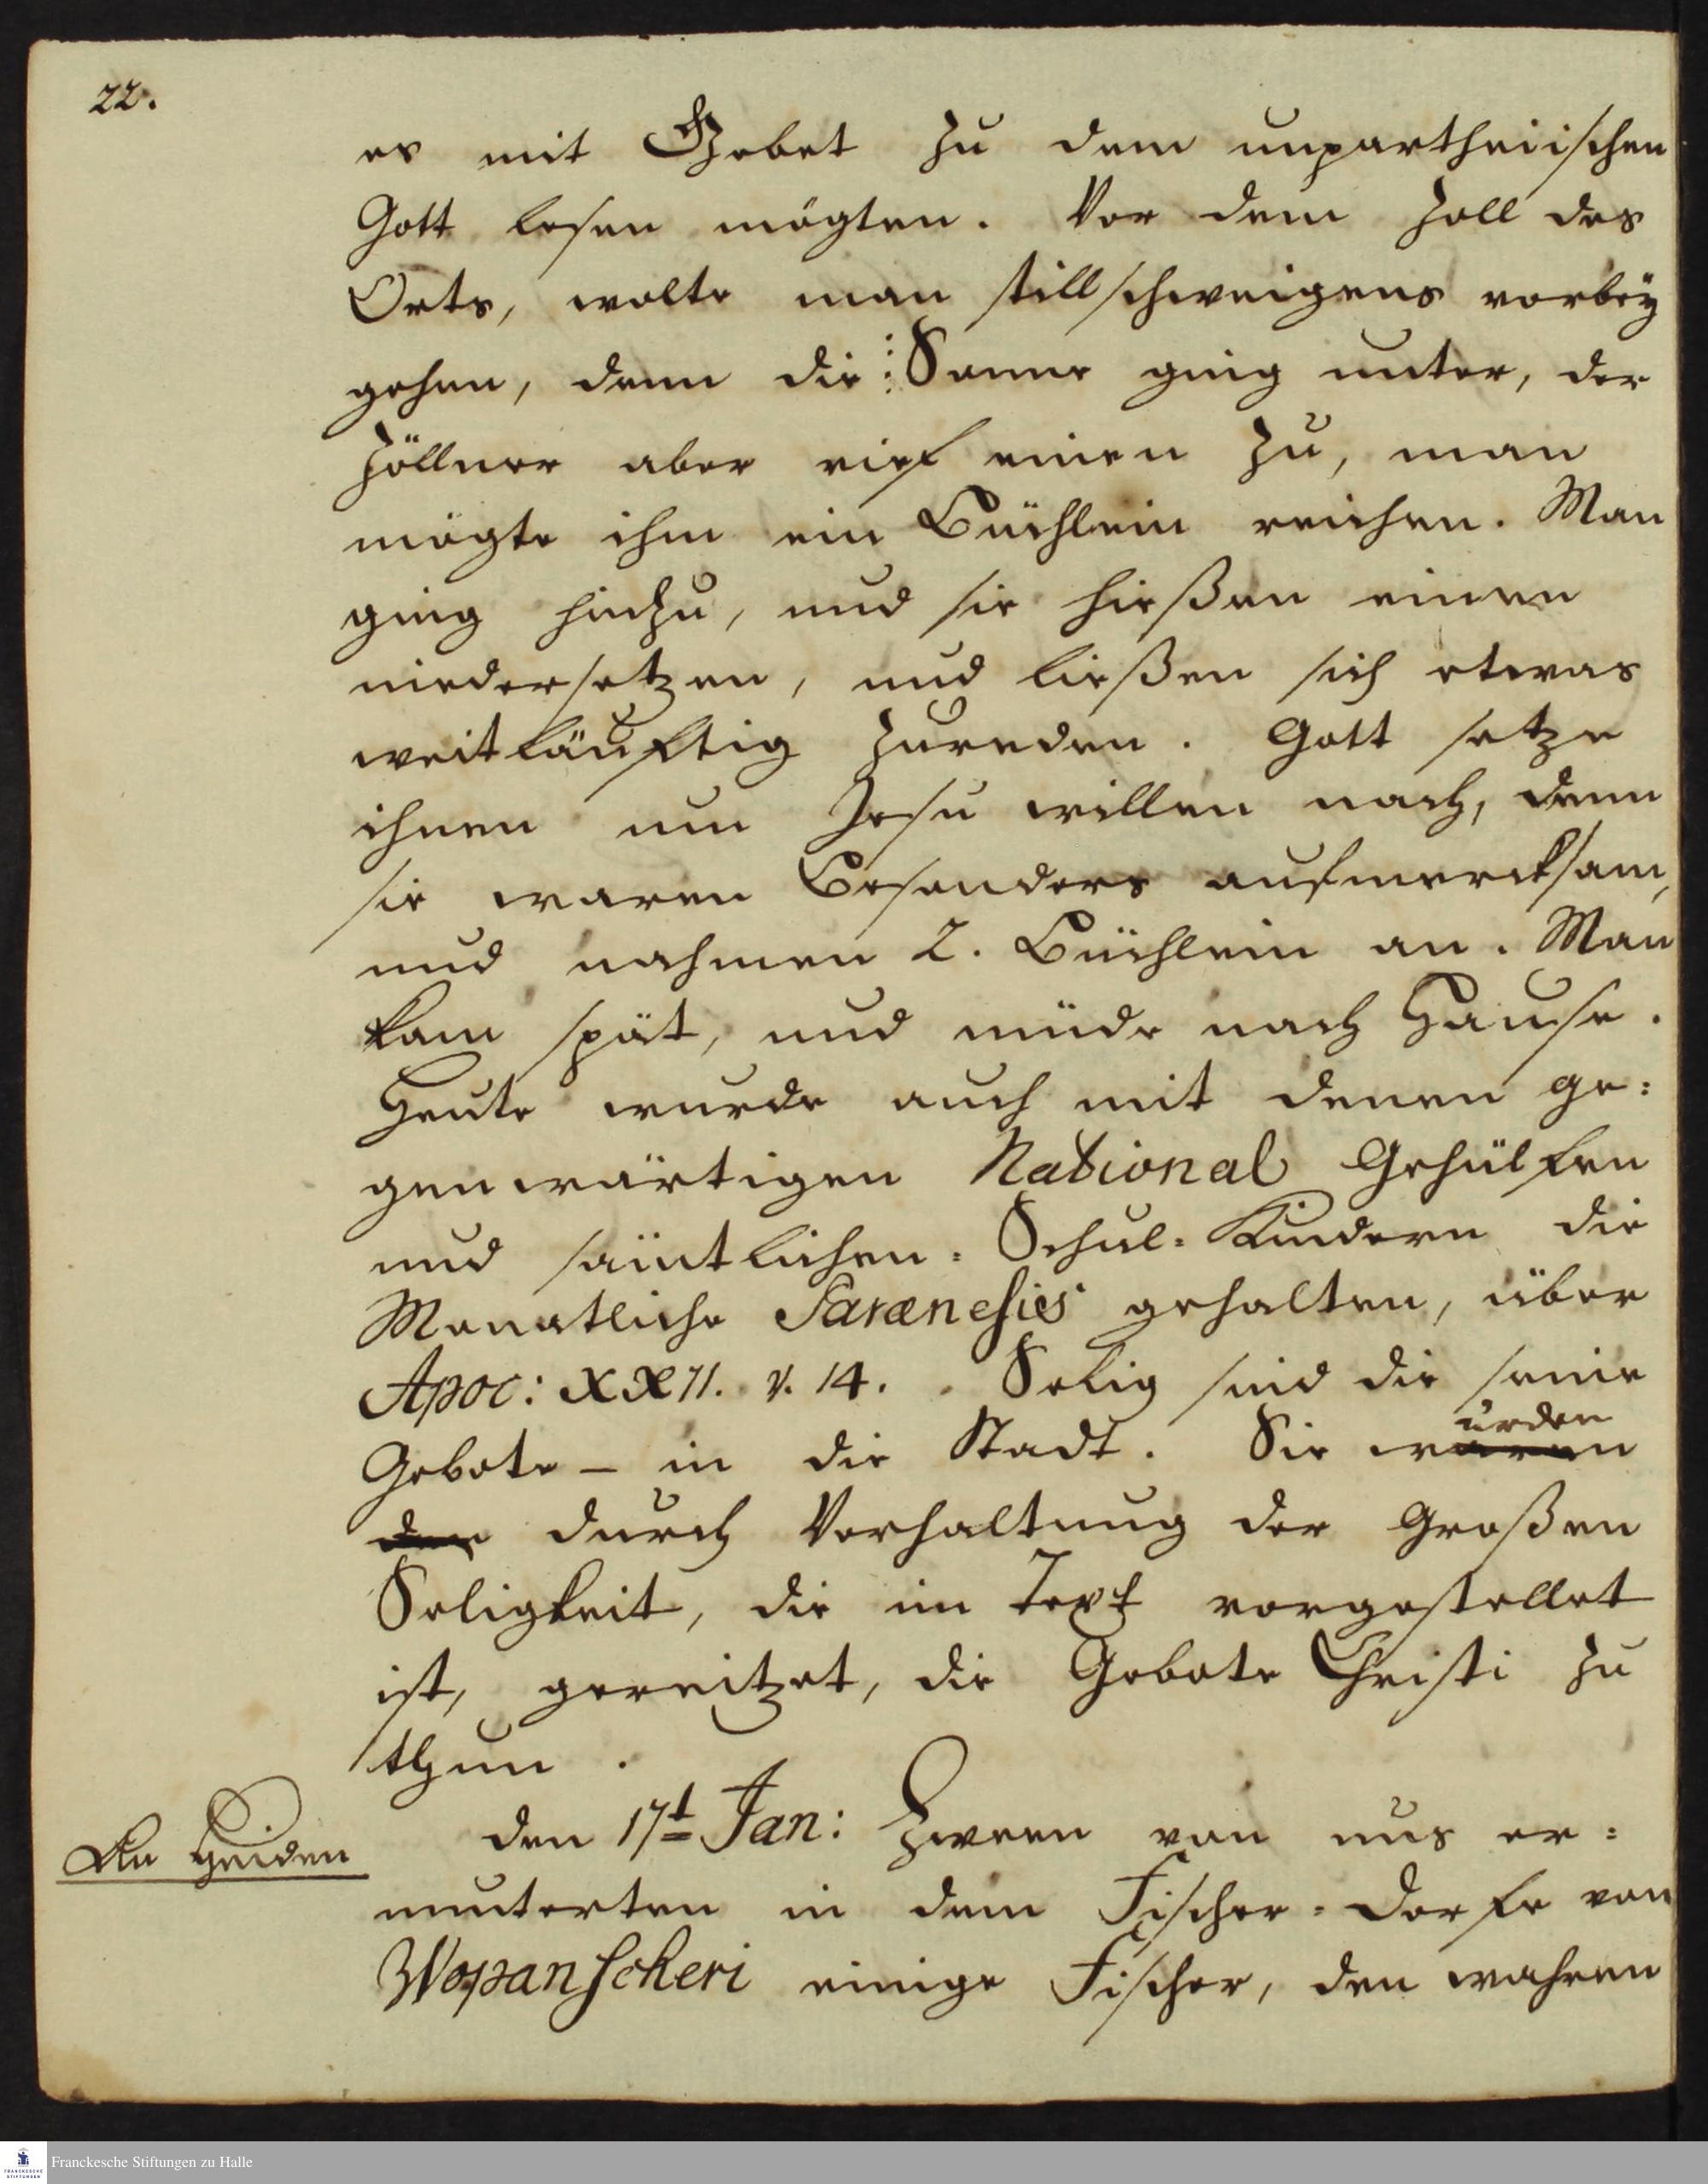 22.
es mit Gebet zu dem unpartheiischen
Gott lesen mögten. Vor dem Zoll des
Orts, wolte man stillschweigens vorbey
gehen, denn die Sonne ging unter, der
Zöllner aber rief einen zu, man
mögte ihm ein Büchlein reichen. Man
ging hinzu, und sie hießen einen
niedersetzen, und ließen sich etwas
weitläuftig zureden. Gott setze
ihnen um Jesu willen nach, denn
sie waren Besonders aufmercksam,
und nahmen 2. Büchlein an. Man
kam spät, und müde nach Hause.
Heute wurde auch mit denen ge:
genwärtigen National Gehülfen
und sämtlichen Schul-Kindern die
Monatliche Parænesies gehalten, über
Apoc: XXII. v. 14. Selig sind die seine
Gebote – in die Stadt. Sie waren
urden
den durch Vorhaltung der Großen
Seligkeit, die im Text vorgestellet
ist, gereitzet, die Gebote Christi zu
thun.
An Heiden
den 17t Jan: Zween von uns er:
munterten in dem Fischer-Dorfe von
Wopanscheri einige Fischer, den wahren
Franckesche Stiftungen zu Halle
FRANCKESCHE
STIFTUNGEN